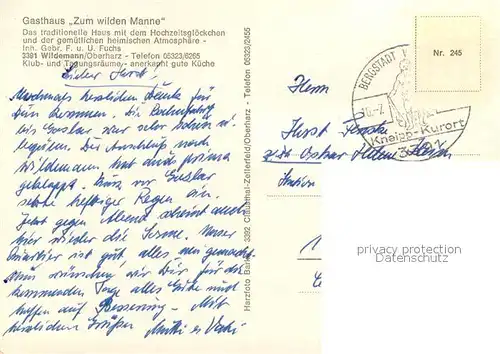 Gasthaus „Zum wilden Manne"
Das traditionelle Haus mit dem Hochzeitsglöckchen
und der gemütlichen heimischen Atmosphäre -
Inh. Gebr. F. u. U. Fuchs
3391 Wildemann/Oberharz - Telefon 05323/6265
Klub- und Tagungsräume - anerkannt gute Küche
Lieber Horst!
Nochmals herzlichen Dank für
Dein Kommen. Die
bis Goslar war sehr schön u.
bequem. Der Anschluß nach
Wildemann hat auch prima
geklappt. Kurz vor Goslar
setzte heftiger Regen ein.
Jetzt gegen Abend scheint auch
hier wieder die Sonne. Unser
Quartier ist gut, alles neu gemacht.
Nun wünschen wir Dir für die
kommenden Tage alles Gute und
hoffen auf Besserung - Mit
herzlichen Grüßen Mutti u. Vati
Harzfoto 3392 Clausthal-Zellerfeld/Oberharz - Telefon 05323/2455
Herrn
Horst
Nr. 245
BERGSTADT
Kneipp-Kurort
3391
privacy protection
Datenschutz